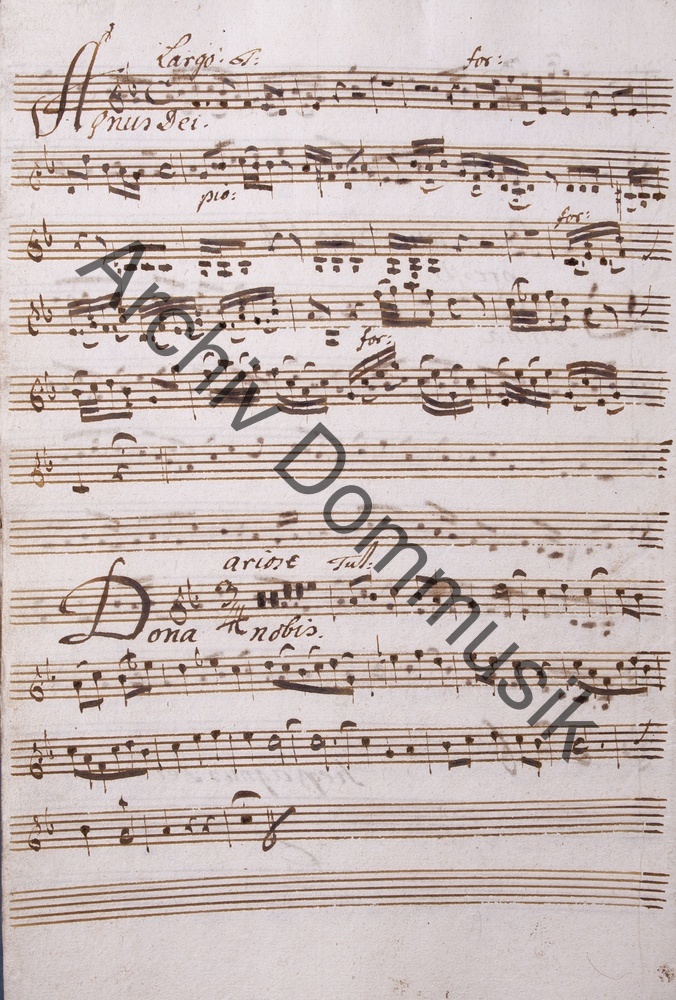 Largo. T: for:
Agnus Dei.
pio:
for:
for:
ariose Tutt:
Dona nobis.
Archiv Dommusik